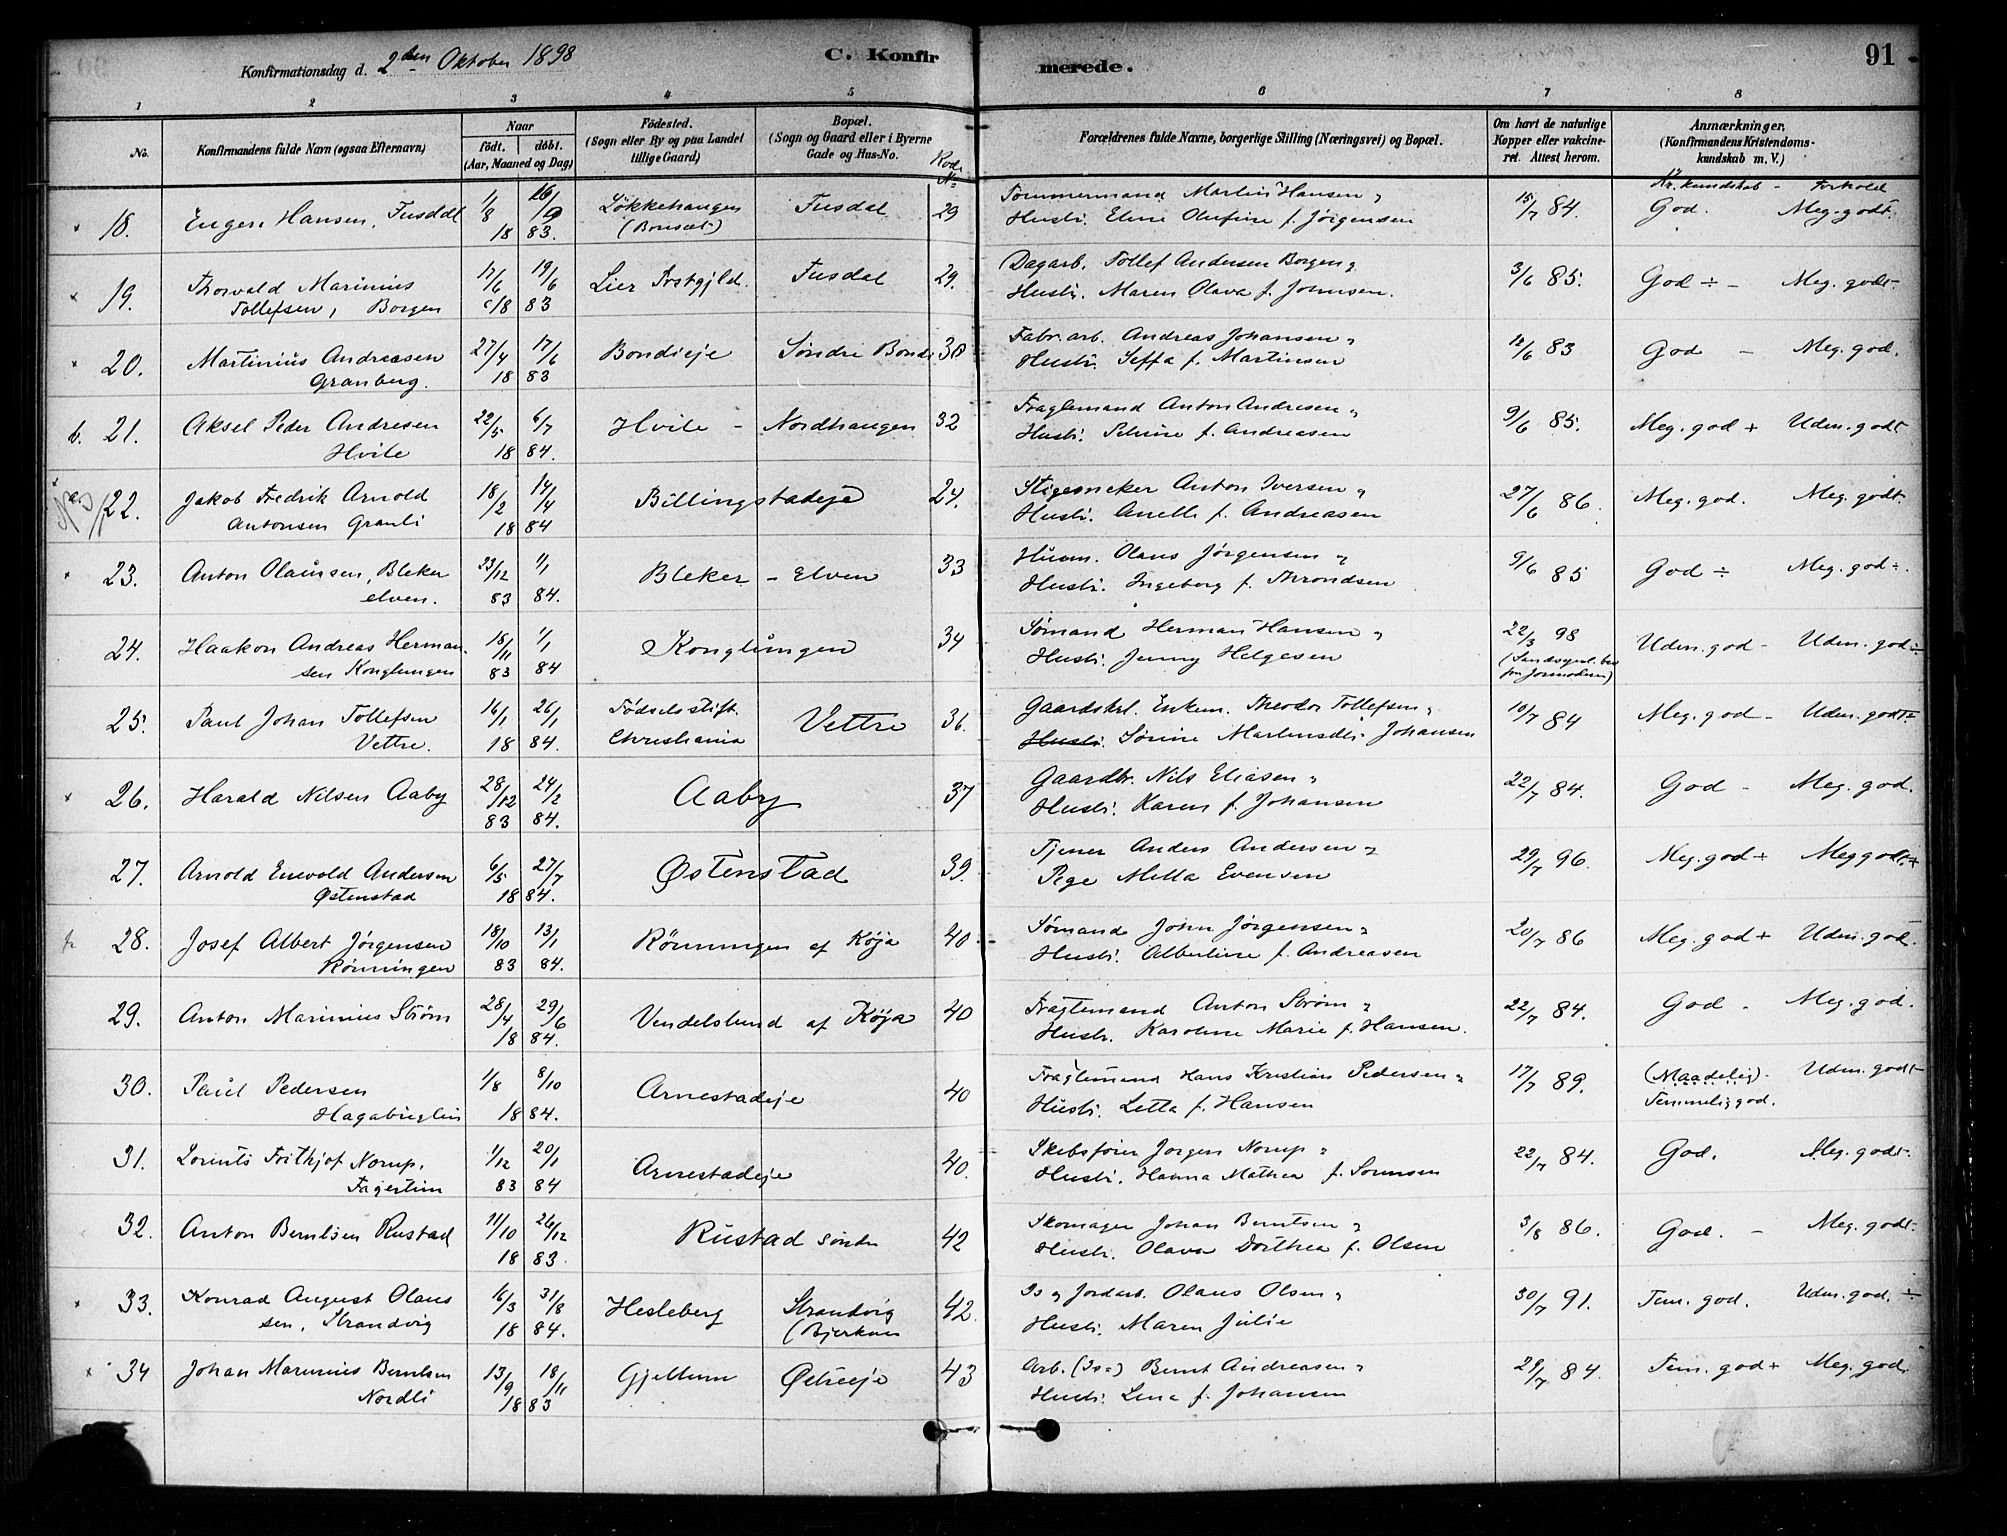 Konfirmationsdag d. 2den Oktober 1898
C. Konfirmerede.
91
1 2 3 4 5 6 7 8
No.
Konfirmandens fulde Navn (ogsaa Efternavn)
Naar
födt. döbt.
(Aar, Maaned og Dag)
Födested.
(Sogn eller By og paa Landet
tillige Gaard)
Bopæl.
(Sogn og Gaard eller i Byerne
Gade og Hus-No.
Rode
No
Forældrenes fulde Navne, borgerlige Stilling (Næringsvei) og Bopæl.
Om havt de naturlige
Kopper eller vakcine-
ret. Attest herom.
Anmærkninger.
(Konfirmandens Kristendoms-
kundskab m. V.)
Kr. kundskab - Forhold
18. Eugen Hansen, Fusdal 1/8 16/9 Løkkehaugen Fusdal 29 Tømmermand Martin Hansen, 15/7 84. God. Meg. godt.
18 83. (Borsæt) Hustr. Eline Olufine f. Jörgensen
19. Thorvald Marinius 17/6 19/6 Lier Prstgjld. Fusdal 29. Dagarb. Tollef Andersen Borgen, 3/6 85. God ÷ - Meg. godt.
Tollefsen, Borgen 18 83 Hustr. Maren Olava f. Johnsen.
20. Martinius Andreasen 27/4 17/6 Bondieje Søndre Bondi 30 Fabr. arb. Andreas Johansen, 12/6 83 God - Meg. god.
Granberg. 18 83 Hustr. Seffa f. Martinsen
b. 21. Aksel Peder Andresen 22/5 6/7 Hvile - Nordhaugen 32 Fragtemand Anton Andresen, 9/6 85. Meg. god + Udm. godt
Hvile 18 84. Hustr. Petrine f. Andreasen
22. Jakob Fredrik Arnold 18/2 14/4 Billingstadeje 24. Stigesneker Anton Iversen, 27/6 86. Meg. god. Meg. godt.
Antonsen Granli 18 84 Hustr. Anette f. Andreasen
23. Anton Olaüssen, Bleker 23/12 1/1 Bleker - Elven 33 Husm. Olaus Jørgensen, 9/6 85 God ÷ Meg. god ÷.
elven. 83 84. Hustr. Ingeborg f. Throndsen
24. Haakon Andreas Herman 18/11 1/1 Konglungen 34 Sømand Herman Hansen, 22/3 98 Udm. god - Udm. god ÷
sen Konglungen 83 84 Hustr. Jenny Helgesen
25. Paul Johan Tollefsen 16/1 26/1 Fødselsstift. Vettre 36. Gaardskrl. Enkem. Theodor Tollefsen, 10/7 84 Meg. god - Udm. godt
Vettre. 18 84. Christiania Hustr. Sörine Martinsdtr. Johansen
26. Harald Nilsen Aaby 28/12 24/2 Aaby 37 Gaardbr. Nils Eliasen, 22/7 84. God - Meg. god.
83 84. Hustr. Karen f. Johansen
27. Arnold Enevold Andersen 6/5 27/7 Østenstad 39. Tjener Anders Andersen, 29/7 96. Meg. god + Meg godt +
Østenstad 18 84. Pige Metta Evensen
28. Josef Albert Jørgensen 18/10 13/1 Rønningen af Køja 40 Sømand John Jørgensen, 20/7 86 Meg. god + Udm. god.
Rønningen 83 84. Hustr. Albertine f. Andreasen
29. Anton Marinius Ström 28/4 29/6 Vendelslund af Køja 40 Fragtemand Anton Strøm, 22/7 84. God - Meg. god.
18 84. Hustr. Karoline Marie f. Hansen.
30. Paul Pedersen 1/8 8/10 Arnestadeje 40 Fragtemand Hans Kristian Pedersen, 17/7 89. (Maadelig). Udm. godt
Hagabuglen 18 84. Hustr. Letta f. Hansen Temmelig god.
31. Lorents Frithjof Norup, 1/12 20/1 Arnestadeje 40. Skibsfører Jørgen Norup, 22/7 84. God. Meg. godt.
Fagertun 83 84 Hustr. Hanna Mathea f. Sørensen
32. Anton Berntsen Rustad 11/10 26/12 Rüstad söndre 42 Skomager Johan Berntsen, 3/8 86. God. - Meg. godt.
18 83. Hustr. Olava Dorthea f. Olsen
33. Konrad August Olaus 16/3 31/8 Hesleberg Strandvig 42. Is og Jordarb. Olaus Olsen, 30/7 91. Tem. god. Udm. god. ÷
sen, Strandvig 18 84. (Bjerkaas Hustr. Maren Julie
34 Johan Marinius Berntsen 13/9 18/11 Gjellum Østreeje 43 Arb. (Is=) Bernt Andreasen, 29/7 84. Tem. god + Meg. god.
Nordli 18 83 Hustr. Lina f. Johansen